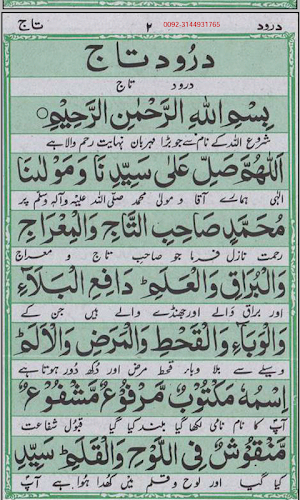 درود ۲ 0092-3144931765 تاج
درود تاج
درود تاج
بِسْمِ اللهِ الرَّحْمٰنِ الرَّحِيْمِ
شروع اللہ کے نام سے جو بڑا مہربان نہایت رحم والا ہے
اَللّٰهُمَّ صَلِّ عَلٰى سَيِّدِنَا وَمَوْلٰنَا
الٰہی ہمارے آقا و مولیٰ محمد صلی اللہ علیہ وآلہ وسلم پر
مُحَمَّدٍ صَاحِبِ التَّاجِ وَالْمِعْرَاجِ
رحمت نازل فرما جو صاحب تاج و معراج
وَالْبُرَاقِ وَالْعَلَمِ ؕ دَافِعِ الْبَلَآءِ
اور براق والے اور جھنڈے والے ہیں جن کے
وَالْوَبَآءِ وَالْقَحْطِ وَالْمَرَضِ وَالْاَلَمِ ؕ
وسیلے سے بلا وبا قحط مرض اور دکھ دور ہوتا ہے
اِسْمُهٗ مَكْتُوْبٌ مَّرْفُوْعٌ مَّشْفُوْعٌ
آپ کا نام نامی لکھا گیا بلند کیا گیا قبول شفاعت
مَّنْقُوْشٌ فِى اللَّوْحِ وَالْقَلَمِ ؕ سَيِّدِ
کیا گیا اور لوح و قلم میں کھدا ہوا ہے آپ